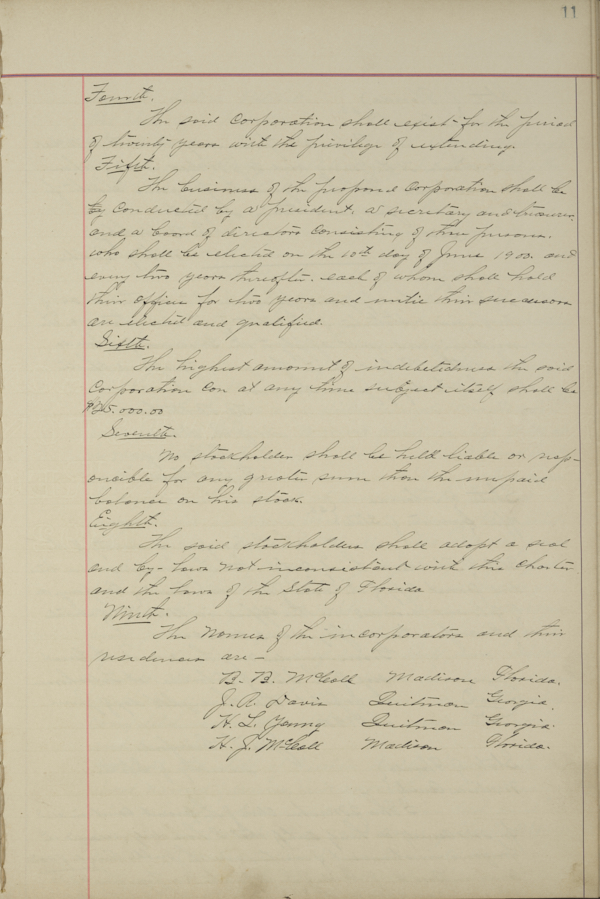 11
Fourth.
The said Corporation shall exist for the period
of twenty years with the privilege of extending.
Fifth.
The business of the proposed Corporation shall be
by conducted by a president, a secretary and treasurer,
and a board of directors consisting of three persons.
who shall be elected on the 10th day of June 1903. and
every two years thereafter. each of whom shall hold
their offices for two years and until their successors
are elected and qualified.
Sixth.
The highest amount of indebtedness the said
Corporation can at any time subject itself shall be
$25.000.00
Seventh.
No stockholder shall be held liable or resp-
onsible for any greater sum than the unpaid
balance on his stock.
Eighth.
The said stockholders shall adopt a seal
and by-laws not inconsistent with this Charter
and the laws of the State of Florida
Ninth.
The Names of the incorporators and their
residences are -
B. B. McCall Madison Florida.
J. A. Davis Quitman Georgia.
H. L. Young Quitman Georgia.
H. J. McCall Madison Florida.